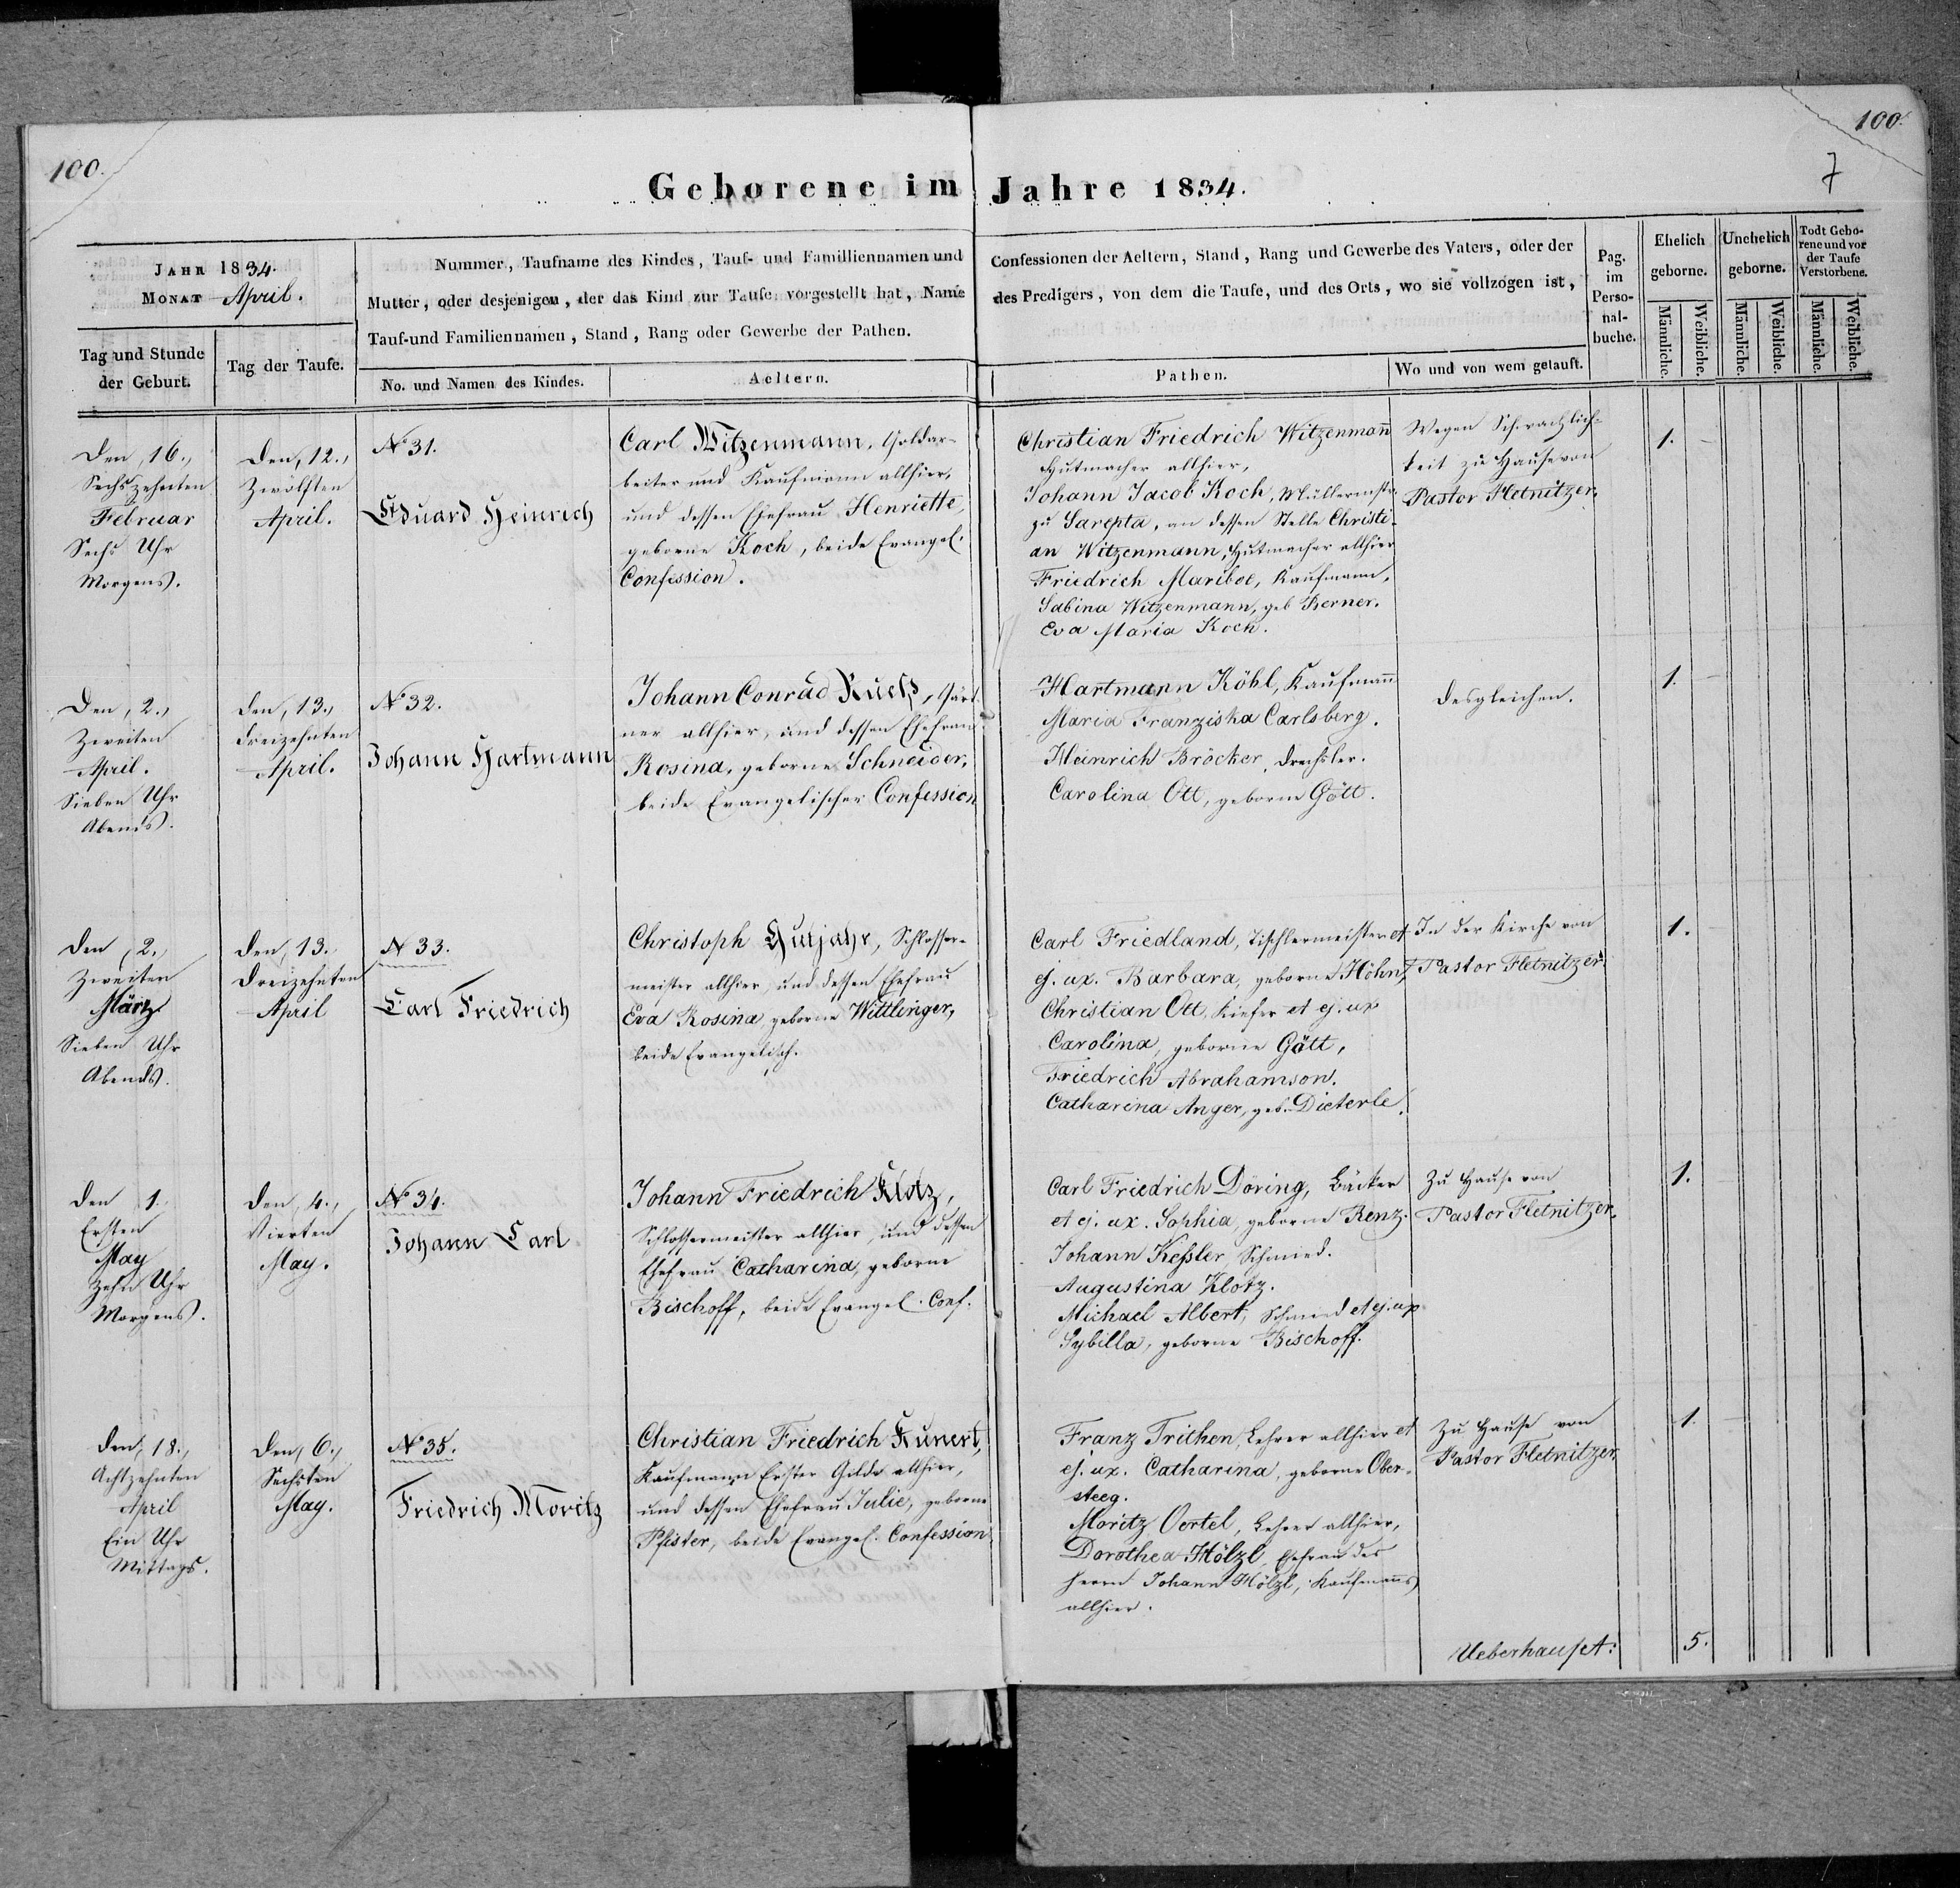 100.
100.
7
Geborene im Jahre 1834.
JAHR 1834.
MONAT April.
Tag und Stunde
der Geburt.
Tag der Taufe.
Nummer, Taufname des Kindes, Tauf- und Familliennamen und
Mutter, oder desjenigen, der das Kind zur Taufe vorgestellt hat, Name
Tauf-und Familiennamen, Stand, Rang oder Gewerbe der Pathen.
No. und Namen des Kindes.
Aeltern.
Confessionen der Aeltern, Stand, Rang und Gewerbe des Vaters, oder der
des Predigers, von dem die Taufe, und des Orts, wo sie vollzogen ist,
Pathen.
Wo und von wem getauft.
Pag.
im
Perso-
nal-
buche.
Ehelich
geborne.
Männliche.
Weibliche.
Unehelich
geborne.
Männliche.
Weibliche.
Todt Gebo-
rene und vor
der Taufe
Verstorbene.
Männliche.
Weibliche.
Den, 16.,
Sechszehnten
Februar
Sechs Uhr
Morgens.
Den, 12.,
Zwölften
April.
No 31.
Eduard Heinrich
Carl Witzenmann, Goldar-
beiter und Kaufmann allhier,
und dessen Ehefrau Henriette,
geborne Koch, beide Evangel.
Confession.
Christian Friedrich Witzenmann
Hutmacher allhier,
Johann Jacob Koch, Müllermstr.
zu Sarepta, an dessen Stelle Christi-
an Witzenmann, Hutmacher allhier
Friedrich Mariboe, Kaufmann,
Sabina Witzenmann, geb. Kerner.
Eva Maria Koch.
Wegen Schwachlich-
keit zu Hause von
Pastor Fletnitzer.
1.
Den, 2.,
Zweiten
April.
Sieben Uhr
Abends.
Den, 13.,
Dreizehnten
April.
No 32.
Johann Hartmann
Johann Conrad Kuelß, Gärt-
ner allhier, und dessen Ehefrau
Rosina, geborne Schneider,
beide Evangelischer Confession
Hartmann Köhl, Kaufmann
Maria Franziska Carlsberg.
Heinrich Bröcker, Drechsler.
Carolina Ott, geborne Gött.
Desgleichen.
1.
Den, 2.,
Zweiten
März
Sieben Uhr
Abends.
Den, 13.
Dreizehnten
April
N 33.
Carl Friedrich
Christoph Gutjahr, Schlosser-
meister allhier, und dessen Ehefrau
Eva Rosina, geborne Wittlinger,
beide Evangelisch.
Carl Friedland, Tischlermeister et
ej. ux. Barbara, geborne Höhn,
Christian Ott, Kiefer et ej. ux
Carolina, geborne Gött,
Friedrich Abrahamson.
Catharina Anger, geb. Dieterle.
In der Kirche von
Pastor Fletnitzer.
1.
Den 1.
Ersten
May
Zehn Uhr
Morgens.
Den, 4.,
Vierten
May.
No 34.
Johann Carl
Johann Friedrich Klotz,
Schlossermeister allhier, und dessen
Ehefrau Catharina, geborne
Bischoff, beide Evangel. Conf.
Carl Friedrich Döring, Bäcker
et ej. ux. Sophia, geborne Renz.
Johann Keßler, Schmied.
Augustina Klotz.
Michael Albert, Schmied et ej. ux
Sybilla, geborne Bischoff.
Zu Hause von
Pastor Fletnitzer.
1.
Den, 18.,
Achtzehnten
April
Ein Uhr
Mittags.
Den, 6.,
Sechsten
May.
No 35.
Friedrich Moritz
Christian Friedrich Kunert,
Kaufmann Erster Gilde allhier,
und dessen Ehefrau Julie, geborne
Pfister, beide Evangel. Confession.
Franz Trithen, Lehrer allhier et
ej. ux. Catharina, geborne Ober-
steeg.
Moritz Oertel, Lehrer allhier,
Dorothea Hölzl, Ehefrau des
Herrn Johann Hölzl, Kaufmanns
allhier.
Zu Hause von
Pastor Fletnitzer
1.
Ueberhaupt:
5.